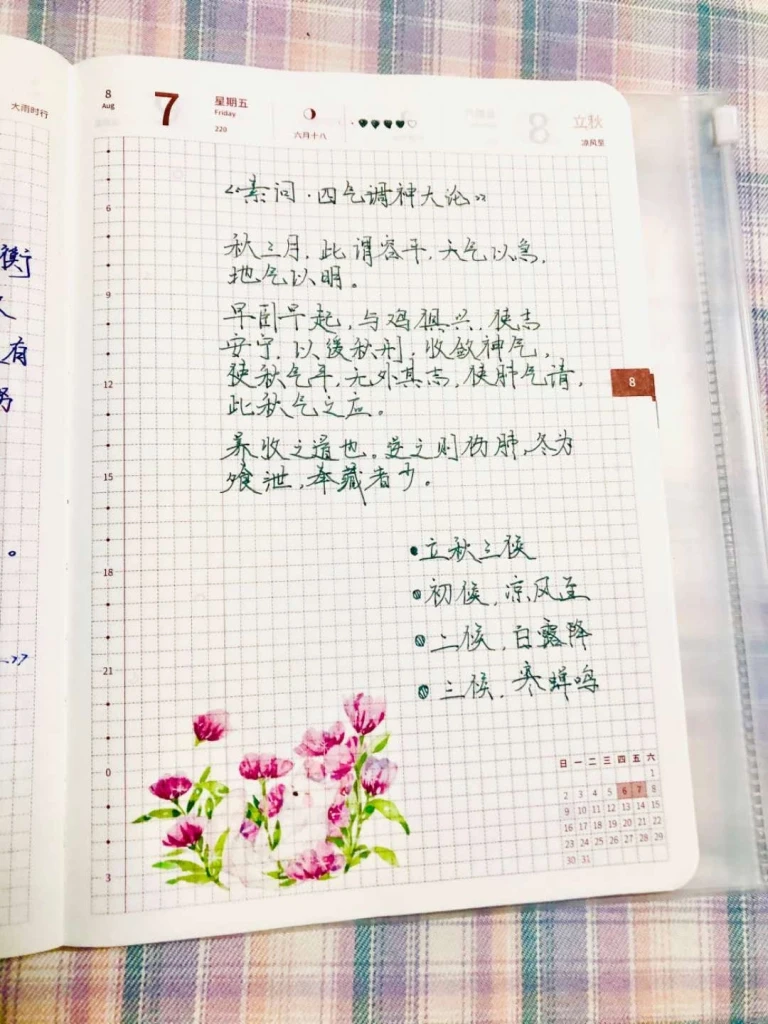 大雨时行
衡
有
8
Aug
7
星期五
Friday
220
六月十八
8
立秋
凉风至
《素问·四气调神大论》
秋三月，此谓容平，天气以急，
地气以明。
早卧早起，与鸡俱兴，使志
安宁，以缓秋刑，收敛神气，
使秋气平，无外其志，使肺气清，
此秋气之应。
养收之道也。逆之则伤肺，冬为
飧泄，奉藏者少。
•立秋三候
•初候，凉风至
•二候，白露降
•三候，寒蝉鸣
6
9
12
15
18
21
0
3
8
日 一 二 三 四 五 六
1
2 3 4 5 6 7 8
9 10 11 12 13 14 15
16 17 18 19 20 21 22
23 24 25 26 27 28 29
30 31